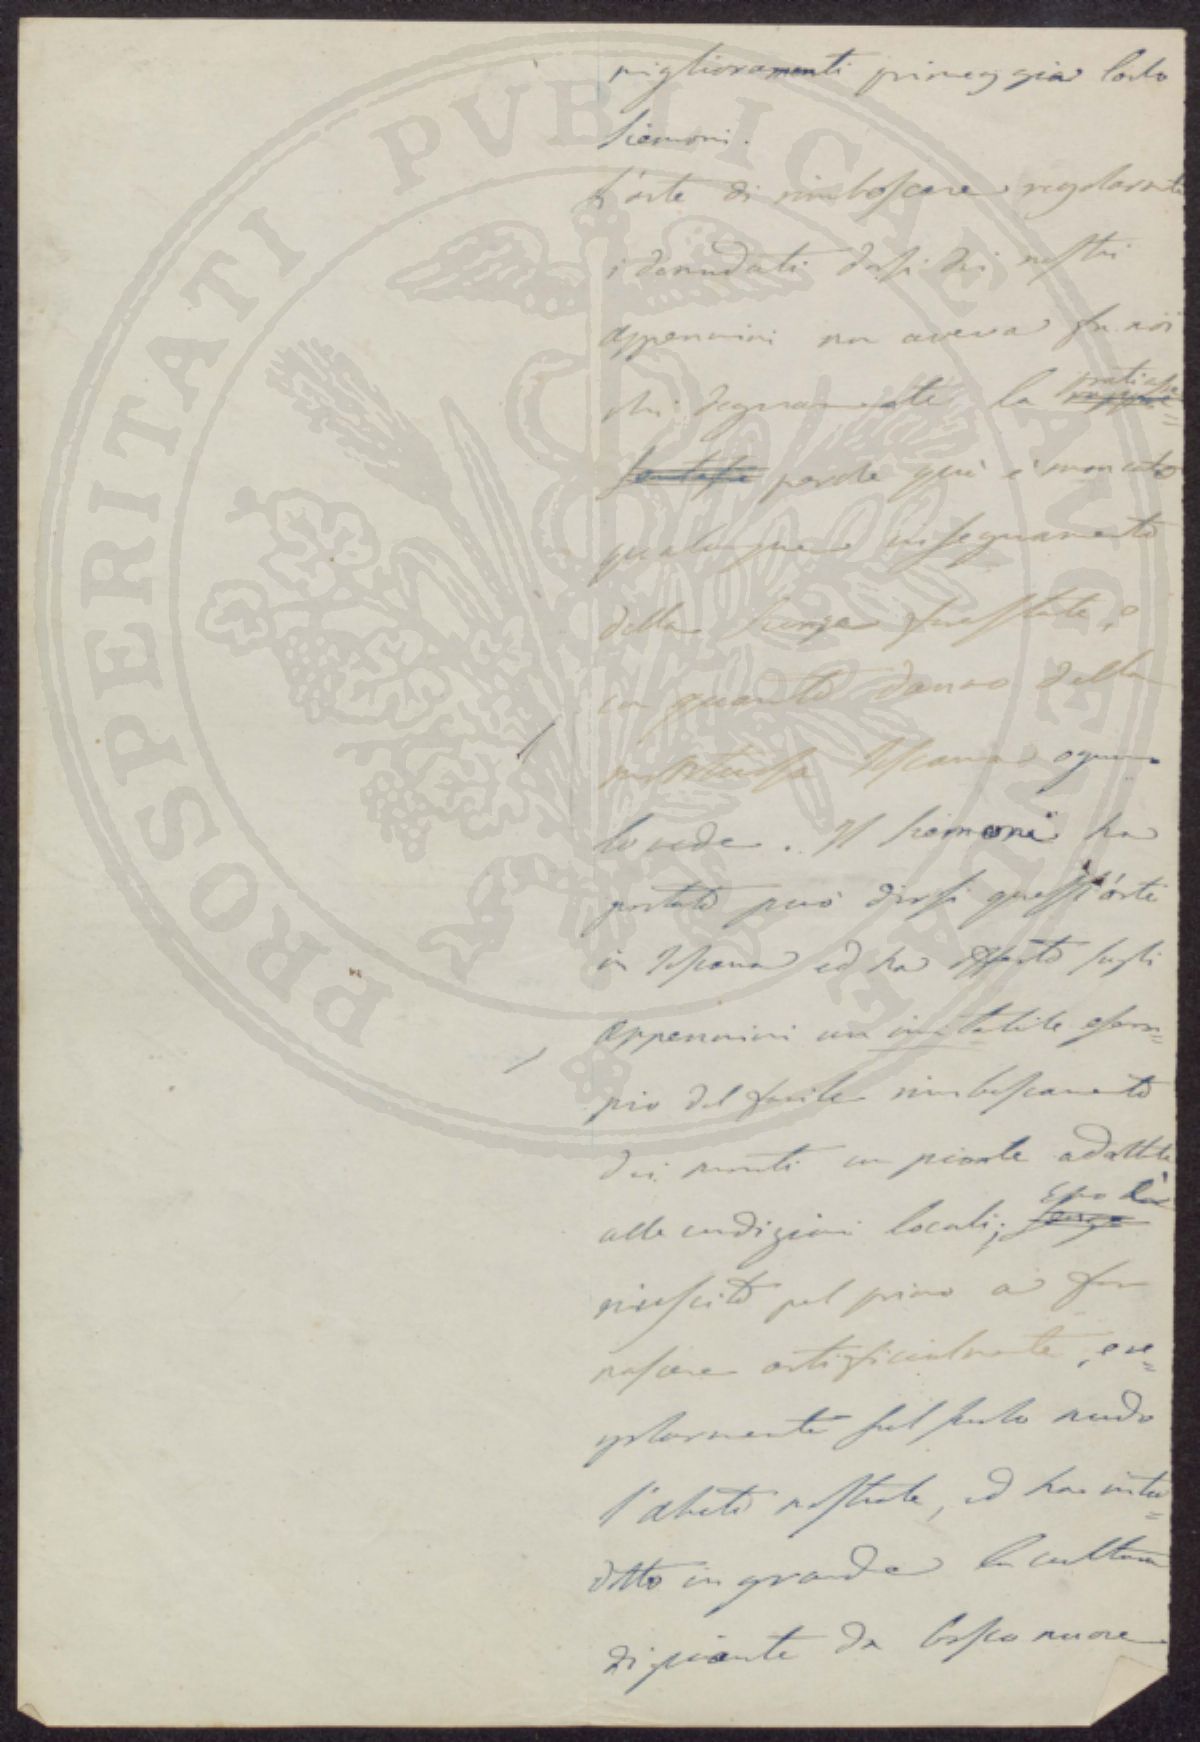 miglioramenti primeggia Carlo
Siemoni.
L'arte di rimboscare regolarmte
i denudati dossi dei nostri
appennini non aveva fra noi
chi degnamente la praticasse
perchè quì è mancato
qualunque insegnamento
della scienza forestale, e
con quanto danno della
montuosa Toscana ognuno
lo vede. Il Siemoni ha
portato può dirsi quest'arte
in Toscana ed ha offerto sugli
appennini un imitabile esem=
pio del facile rimboscamento
dei monti con piante adattate
alle condizioni locali; Egli è
riuscito pel primo a far
nascere artificialmente, e re=
golarmente sul suolo nudo
l'abeto nostrale, ed ha intro=
dotto in grande la cultura
di piante da bosco nuove
PROSPERITATI PVBLICAE AVGENDAE